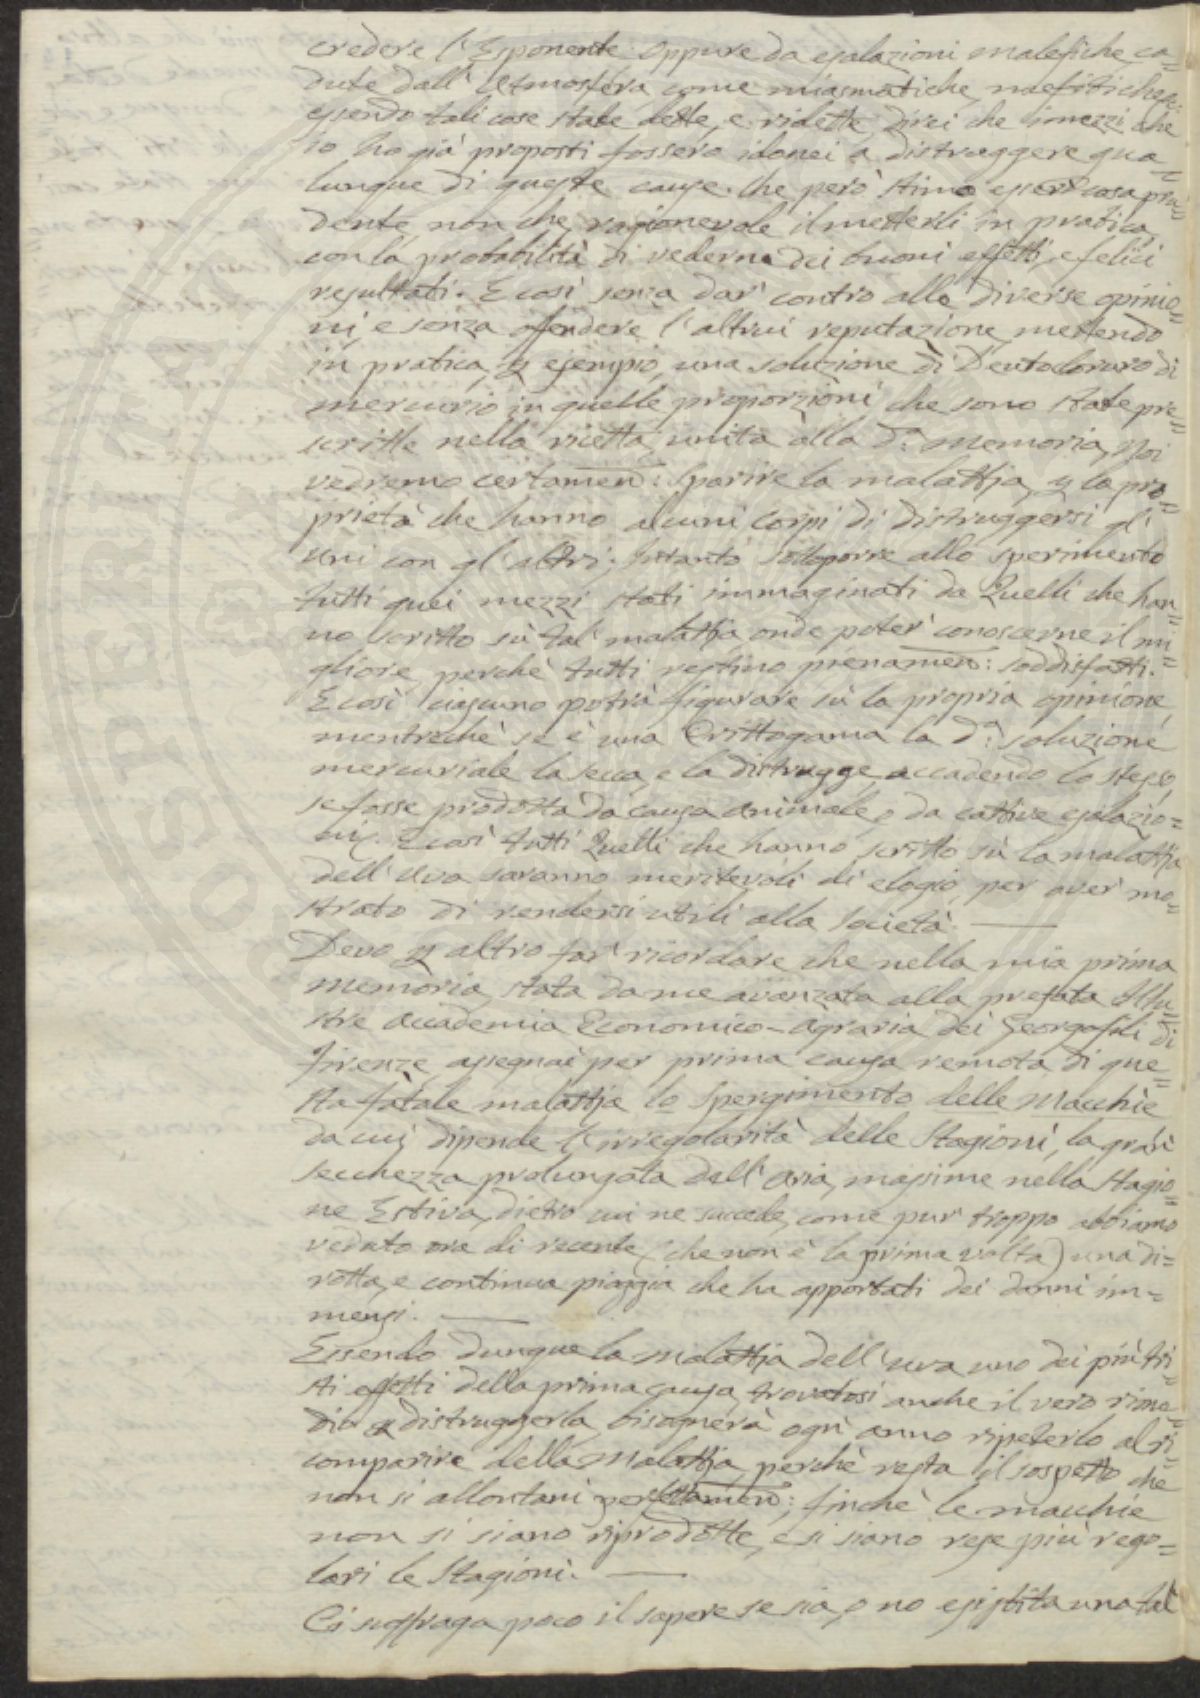 credere l'Esponente. Oppure da esalazioni malefiche ca=
dute dall'Atmosfera, come miasmatiche, mefitiche,
essendo tali cose state dette, e ridette, direi che i mezzi che
io ho già proposti fossero idonei a distruggere qua=
lunque di queste cause. Che però stimo esser cosa pru=
dente, non che, ragionevole il metterli in pratica,
con la probabilità di vederne dei buoni effetti, e felici
resultati. E così senza dar' contro alle diverse opinio=
ni, e senza offendere l'altrui reputazione, mettendo
in pratica, p esempio, una soluzione di Deutocloruro di
mercurio in quelle proporzioni che sono state pre=
scritte nella ricetta, unita alla d.a memoria, Noi
vedremo certamen: sparire la malattja, p la pro=
prietà che hanno alcuni Corpi di distruggersi gl'
uni con gl'altri; Intanto sottoporre allo sperimento
tutti quei mezzi stati immaginati da Quelli che han=
no scritto sù tal' malattja, onde poter' conoscerne il mi=
gliore, perchè tutti restino pienamen: soddisfatti.
E così ciascuno potrà figurare sù la propria opinione
mentrechè se è una Crittogama la d.a soluzione
mercuriale la secca, e la distrugge, accadendo lo stesso,
se fosse prodotta da causa animale, o da cattive esalazio=
ni. E così tutti Quelli che hanno scritto sù la malattja
dell'Uva saranno meritevoli di elogio, per aver' mo=
strato di rendersi utili alla Società. —
Devo p altro far' ricordare che nella mia prima
memoria, stata da me avanzata alla prefata Illu=
stre Accademia Economico-Agraria dei Georgofili di
Firenze assegnai per prima causa remota di que=
sta fatale malattja lo spergimento delle Macchie
da cui dipende l'irregolarità delle Stagioni, la gran
secchezza prolungata dell'aria, massime nella Stagio=
ne Estiva, dietro cui ne succede, come pur troppo abbiamo
veduto ora di recente (che non è la prima volta) una di=
rotta, e continua pioggia che ha apportati dei danni im=
mensi. —
Essendo dunque la malattja dell'uva uno dei più tri=
sti effetti della prima causa, trovatosi anche il vero rime=
dio p distruggerla, bisognerà ogni anno ripeterlo al ri=
comparire della Malattja, perchè resta il sospetto che
non si allontani perfettamen:, finchè le macchie
non si siano riprodotte, e si siano rese più rego=
lari le Stagioni. —
Ci suffraga poco il sapere se sia, o no esistita una tal